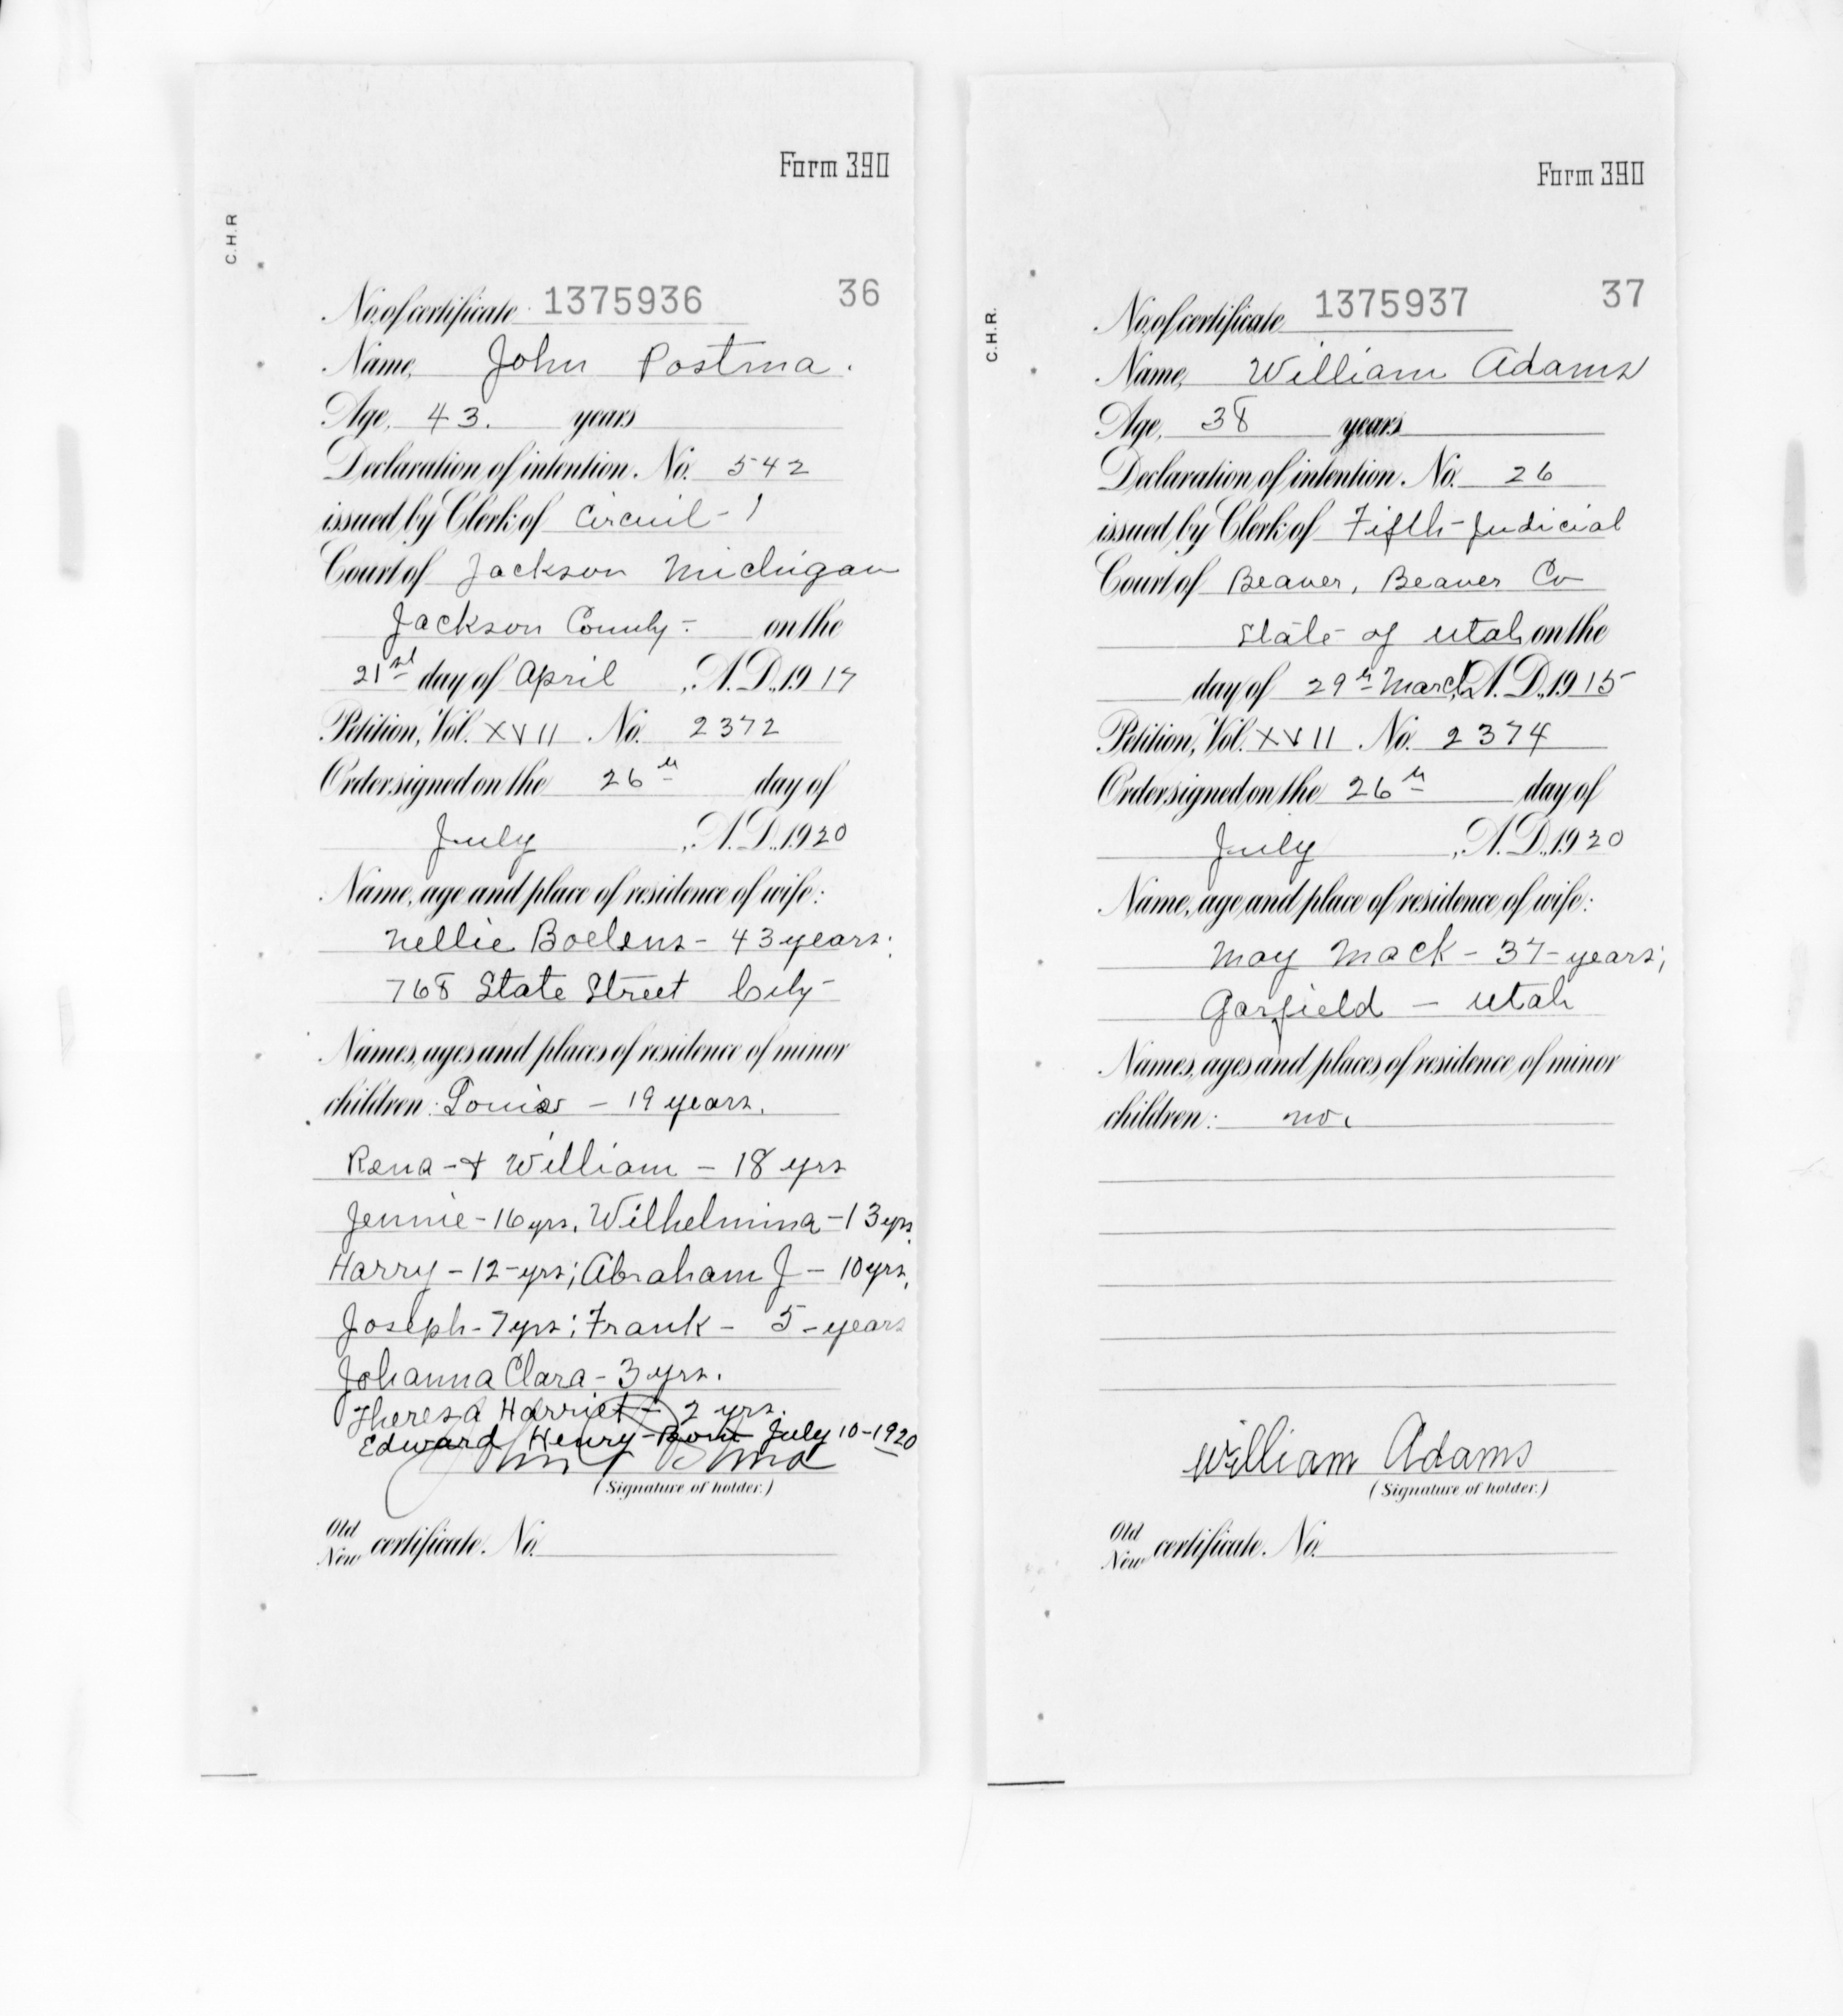 Form 390
C.H.R
36
No. of certificate 1375936
Name, John Postma.
Age, 43. years
Declaration of intention. No. 542
issued by Clerk of Circuit - 1
Court of Jackson Michigan
Jackson County - on the
21st day of April, A.D., 1917
Petition, Vol. XVII No. 2372
Order signed on the 26th day of
July, A.D., 1920
Name, age and place of residence of wife:
Nellie Boelens - 43 years;
768 State Street City
Names, ages and places of residence of minor
children: Louis - 19 years.
Rena - + William - 18 yrs
Jennie - 16 yrs. Wilhelmina - 13 yrs.
Harry - 12 - yrs; Abraham J - 10 yrs,
Joseph - 7 yrs; Frank - 5 - years
Johanna Clara - 3 yrs.
Theresa Harriet - 2 yrs.
Edward Henry - Born July 10 - 1920
John Postma
(Signature of holder.)
Old
New certificate. No.
Form 390
C.H.R.
37
No. of certificate 1375937
Name, William Adams
Age, 38 years
Declaration of intention. No. 26
issued by Clerk of Fifth - Judicial
Court of Beaver, Beaver Co
State of Utah on the
day of 29th March, A.D., 1915
Petition, Vol. XVII No. 2374
Order signed on the 26th day of
July, A.D., 1920
Name, age and place of residence of wife:
May Mack - 37 - years;
Garfield - Utah
Names, ages and places of residence of minor
children: no.
William Adams
(Signature of holder.)
Old
New certificate. No.